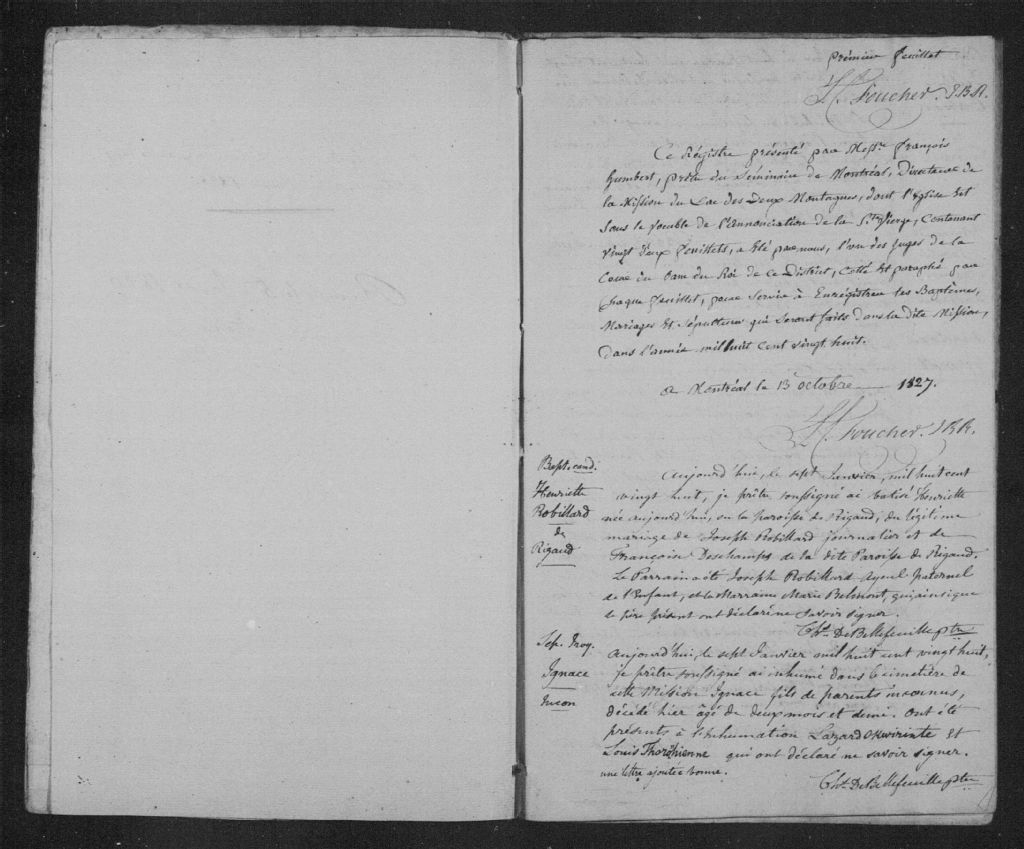 premier feuillet
L. C. Foucher. J.B.R.
Ce Régistre présenté par Messre. françois
humbert, prêtre du Séminaire de Montréal, Directeur de
la Mission du Lac des Deux Montagnes, dont l'église est
sous le vocable de l'annonciation de la Ste Vierge, Contenant
vingt deux feuillets, a été par nous, l'un des Juges de la
Cour du banc du Roi de ce District, Cotté et paraphé par
chaque feuillet, pour servir à Enrégistrer les Baptêmes,
Mariages et Sépultures qui seront faits dans la dite Mission,
dans l'année mil huit cent vingt huit.
a Montréal le 13 octobre 1827.
L. C. Foucher. J.B.R.
Bapt. cand.
Henriette
Robillard
de
Rigaud
Aujourd'hui, le sept Janvier, mil huit cent
vingt huit, je prêtre soussigné ai batisé Henriette
née aujourd'hui, en la paroisse de Rigaud, du légitime
mariage de Joseph Robillard journalier et de
Françoise Deschamps de la dite Paroisse de Rigaud.
Le Parrain a été Joseph Robillard ayeul paternel
de l'Enfant, et la Marraine Marie Belmont, qui ainsi que
le père présent ont déclaré ne savoir signer.
Chs. De Bellefeuille ptre
Sep. Iroq.
Ignace
Incon
Aujourd'hui, le sept Janvier mil huit cent vingt huit,
je prêtre soussigné ai inhumé dans le cimetière de
cette Mission Ignace fils de parents inconnus,
décédé hier âgé de deux mois et demi. Ont été
présents à l'inhumation Lazard Okwirinte et
Louis Thorahienne qui ont déclaré ne savoir signer.
une lettre ajoutée bonne.
Chs. De Bellefeuille ptre